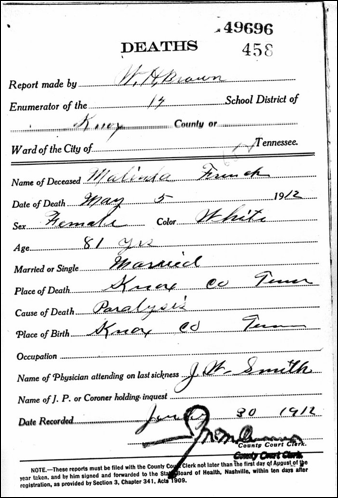 49696
DEATHS 458
Report made by W. H. Brown
Enumerator of the 14 School District of
Knox County or
Ward of the City of Tennessee.
Name of Deceased Malinda French
Date of Death May 5 1912
Sex Female Color White
Age 81 yrs
Married or Single Married
Place of Death Knox Co Tenn
Cause of Death Paralysis
Place of Birth Knox Co Tenn
Occupation
Name of Physician attending on last sickness J. W. Smith
Name of J. P. or Coroner holding inquest
Date Recorded June 30 1912
County Court Clerk.
County Court Clerk.
NOTE.—These reports must be filed with the County Court Clerk not later than the first day of August of the
year taken, and by him signed and forwarded to the State Board of Health, Nashville, within ten days after
registration, as provided by Section 3, Chapter 341, Acts 1909.